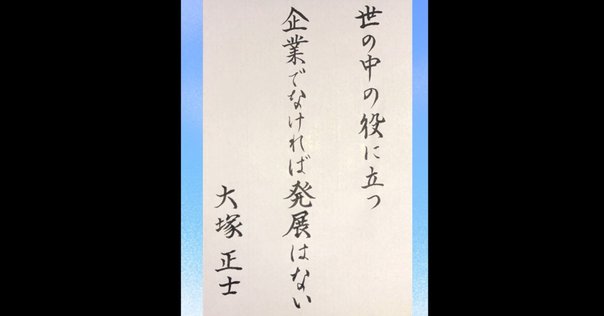 世の中の役に立つ
企業でなければ発展はない
大塚正士